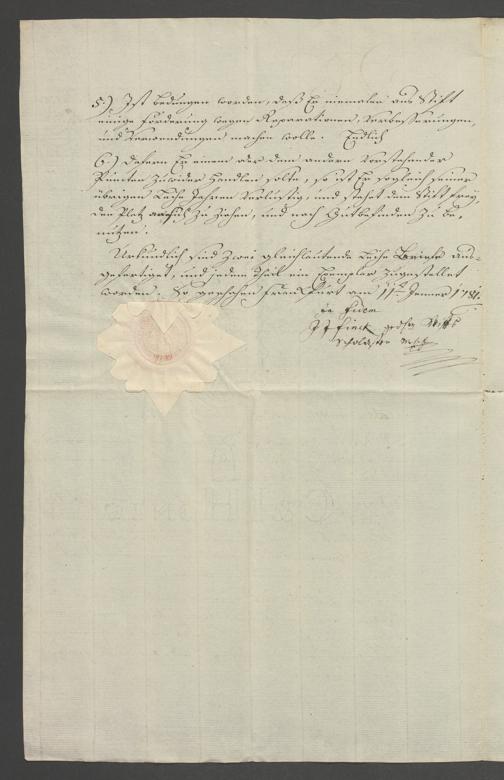 5.) Ist bedungen worden, daß Er niemalen ans Stift
einige Forderung wegen Reparationen, Verbesserungen,
und Verwendungen machen wolle. Endlich
6.) Dafern Er einem oder dem andern vorstehender
Puncten zuwider handlen solte, so ist Er sogleich seiner
übrigen Leihe Jahren verlustig, und stehet dem Stift frey,
den Platz an sich zu ziehen, und nach Gutbefinden zu be-
nutzen.
Urkundlich sind zwei gleichlautende Leihe Briefe aus-
gefertiget, und jedem Theil ein Exemplar zugestellet
worden. So geschehen Frankfurt am 11ten Jenner 1781.
in fidem
Finck
Scholaster